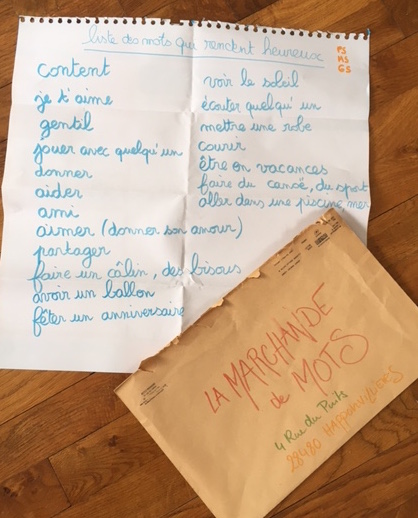 liste des mots qui rendent heureux
PS
MS
GS
content
je t'aime
gentil
jouer avec quelqu'un
donner
aider
ami
aimer (donner son amour)
partager
faire un câlin, des bisous
avoir un ballon
fêter un anniversaire
voir le soleil
écouter quelqu'un
mettre une robe
courir
être en vacances
faire du canoë, du sport
aller dans une piscine, mer
LA MARCHANDE
de MOTS
4 Rue du Puits
28480 HAPPONVILLIERS